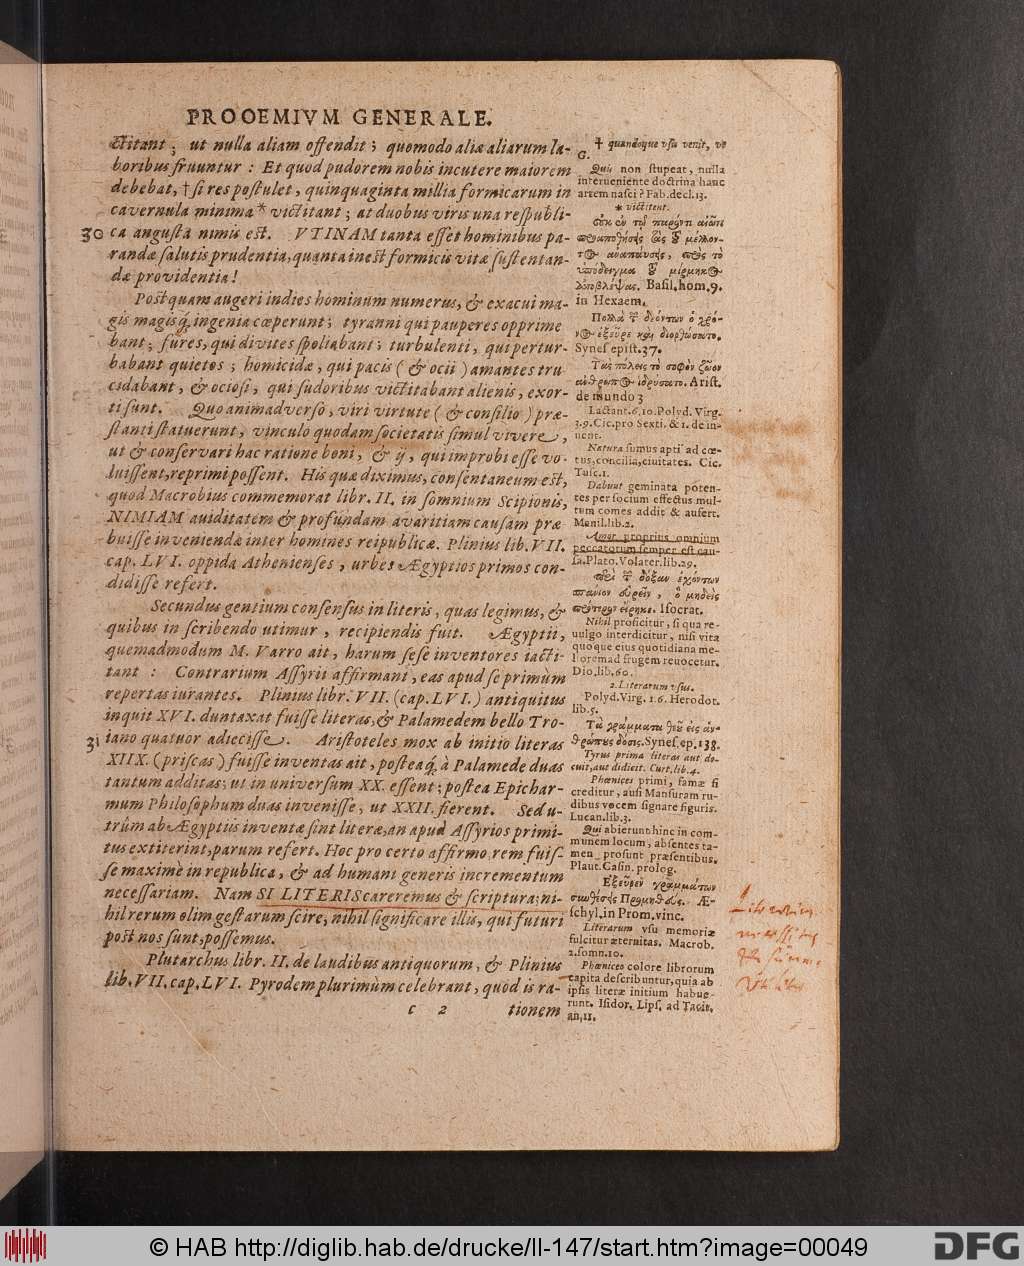 PROOEMIVM GENERALE.
ctitant; ut nulla aliam offendit; quomodo aliæ aliarum la-
boribus fruuntur: Et quod pudorem nobis incutere maiorem
debebat, † si res postulet, quinquaginta millia formicarum in
cavernula minima * victitant; at duobus viris una respubli-
30 ca angusta nimis est. VTINAM tanta esset hominibus pa-
randæ salutis prudentia, quanta inest formicis vitæ sustentan-
dæ providentia!
Postquam augeri indies hominum numerus, & exacui ma-
gis magisq́; ingenia cœperunt; tyranni qui pauperes opprime
bant; fures, qui divites spoliabant; turbulenti, qui pertur-
babant quietos; homicidæ, qui pacis (& ocii) amantes tru
cidabant, & ociosi, qui sudoribus victitabant alienis, exor-
ti sunt. Quo animadverso, viri virtute (& consilio) præ-
stanti statuerunt, vinculo quodam societatis simul vivere,
ut & conservari hac ratione boni, & ij, qui improbi esse vo-
luissent, reprimi possent. His quæ diximus, consentaneum est,
quod Macrobius commemorat libr. II. in somnium Scipionis,
NIMIAM auiditatem & profundam avaritiam causam præ
buisse inveniendæ inter homines reipublicæ. Plinius lib. VII.
cap. LVI. oppida Athenienses, urbes Ægyptios primos con-
didisse refert.
Secundus gentium consensus in literis, quas legimus, &
quibus in scribendo utimur, recipiendis fuit. Ægyptii,
quemadmodum M. Varro ait, harum sese inventores iacti-
tant: Contrarium Assyrii affirmant, eas apud se primùm
repertas iurantes. Plinius libr. VII. (cap. LVI.) antiquitus
inquit XVI. duntaxat fuisse literas, & Palamedem bello Tro-
31 iano quatuor adiecisse. Aristoteles mox ab initio literas
XIIX. (priscas) fuisse inventas ait, posteaq́; à Palamede duas
tantum additas; ut in universum XX. essent; postea Epichar-
mum Philosophum duas invenisse, ut XXII. fierent. Sed u-
trùm ab Ægyptiis inventæ sint literæ, an apud Assyrios primi-
tus extiterint, parum refert. Hoc pro certo affirmo, rem fuis-
se maximè in republica, & ad humani generis incrementum
necessariam. Nam SI LITERIS careremus & scriptura; ni-
hil rerum olim gestarum scire, nihil significare illis, qui futuri
post nos sunt, possemus.
Plutarchus libr. II. de laudibus antiquorum, & Plinius
lib. VII. cap. LVI. Pyrodem plurimùm celebrant, quòd is ra-
c 2 tionem
† quandoque usu venit, ve
G.
Quis non stupeat, nulla
interueniente doctrina hanc
artem nasci? Fab. decl. 13.
* victitent.
Basil. hom. 9.
in Hexaem.
Πολλὰ τῶν δεόντων ὁ χρό-
νος ἐξεῦρε καὶ διορθώσατο.
Synes. epist. 37.
Τὰς πόλεις τὸ σοφὸν ζῶον
ἄνθρωπος ἱδρύσατο. Arist.
de mundo 3
Lactant. 6, 10. Polyd. Virg.
3. 9. Cic. pro Sexti. & 1. de in-
uent.
Natura sumus apti ad cœ-
tus, concilia, ciuitates. Cic.
Tusc. 1.
Dabunt geminata poten-
tes per socium effectus: mul-
tum comes addit & aufert.
Manil. lib. 2.
Amor proprius omnium
peccatorum semper est cau-
sa. Plato. Volater. lib. 29.
Isocrat.
Nihil proficitur, si qua re-
uulgo interdicitur, nisi vita
quoque eius quotidiana me-
lioremad frugem reuocetur.
Dio, lib. 60.
2. Literarum vsus.
Polyd. Virg. 1. 6. Herodot.
lib. 5.
Τὰ γράμματα θεῶν εἰς ἀν-
θρώπους δόσις. Synes. ep. 138.
Tyrus prima literas aut do-
cuit, aut didicit. Curt. lib. 4.
Phœnices primi, famæ si
creditur, ausi Mansuram ru-
dibus vocem signare figuris.
Lucan. lib. 3.
Qui abierunt hinc in com-
munem locum, absentes ta-
men prosunt præsentibus.
Plaut. Casin. prolog.
Ἐξεῦρεν γραμμάτων
συνθέσεις Προμηθεύς. Æ-
schyl. in Prom. vinc.
Literarum vsu memoriæ
fulcitur æternitas. Macrob.
2. somn. 10.
Phœniceo colore librorum
capita describuntur, quia ab
ipsis literæ initium habue-
runt. Isidor. Lips. ad Tacit.
an, 11.
© HAB http://diglib.hab.de/drucke/ll-147/start.htm?image=00049
DFG